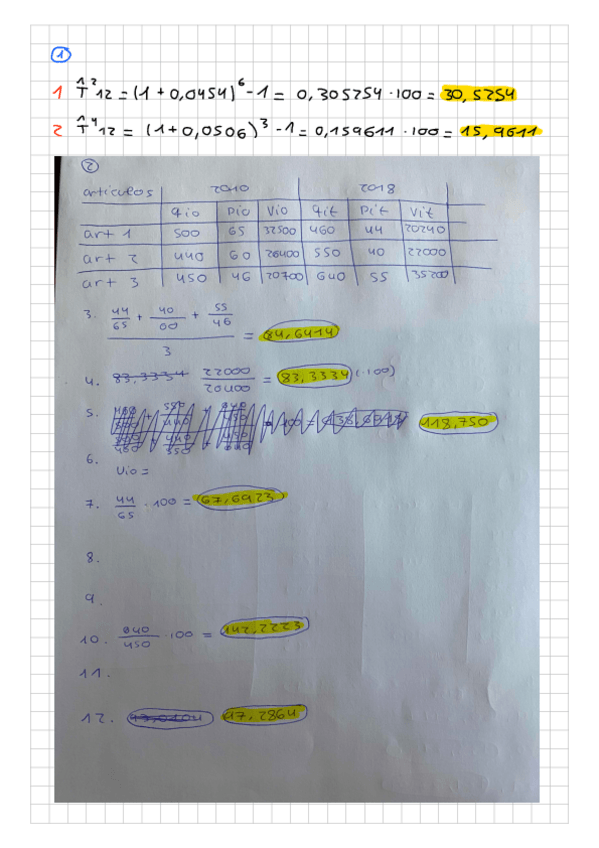 1
1 T̂² 12 = (1 + 0,0454)⁶ - 1 = 0,305254 · 100 = 30,5254
2 T̂⁴ 12 = (1 + 0,0506)³ - 1 = 0,159611 · 100 = 15,9611
2
articulos 2010 2018
qio Pio Vio qit Pit Vit
art 1 500 65 32500 460 44 20240
art 2 440 60 26400 550 40 22000
art 3 450 46 20700 640 55 35200
3. 44/65 + 40/60 + 55/46
3 = 84,6414
4. 83,3334 22000/26400 = 83,3334 (·100)
5. 118,750
6. Vio =
7. 44/65 · 100 = 67,6923
8.
9.
10. 640/450 · 100 = 142,2223
11.
12. 97,2864